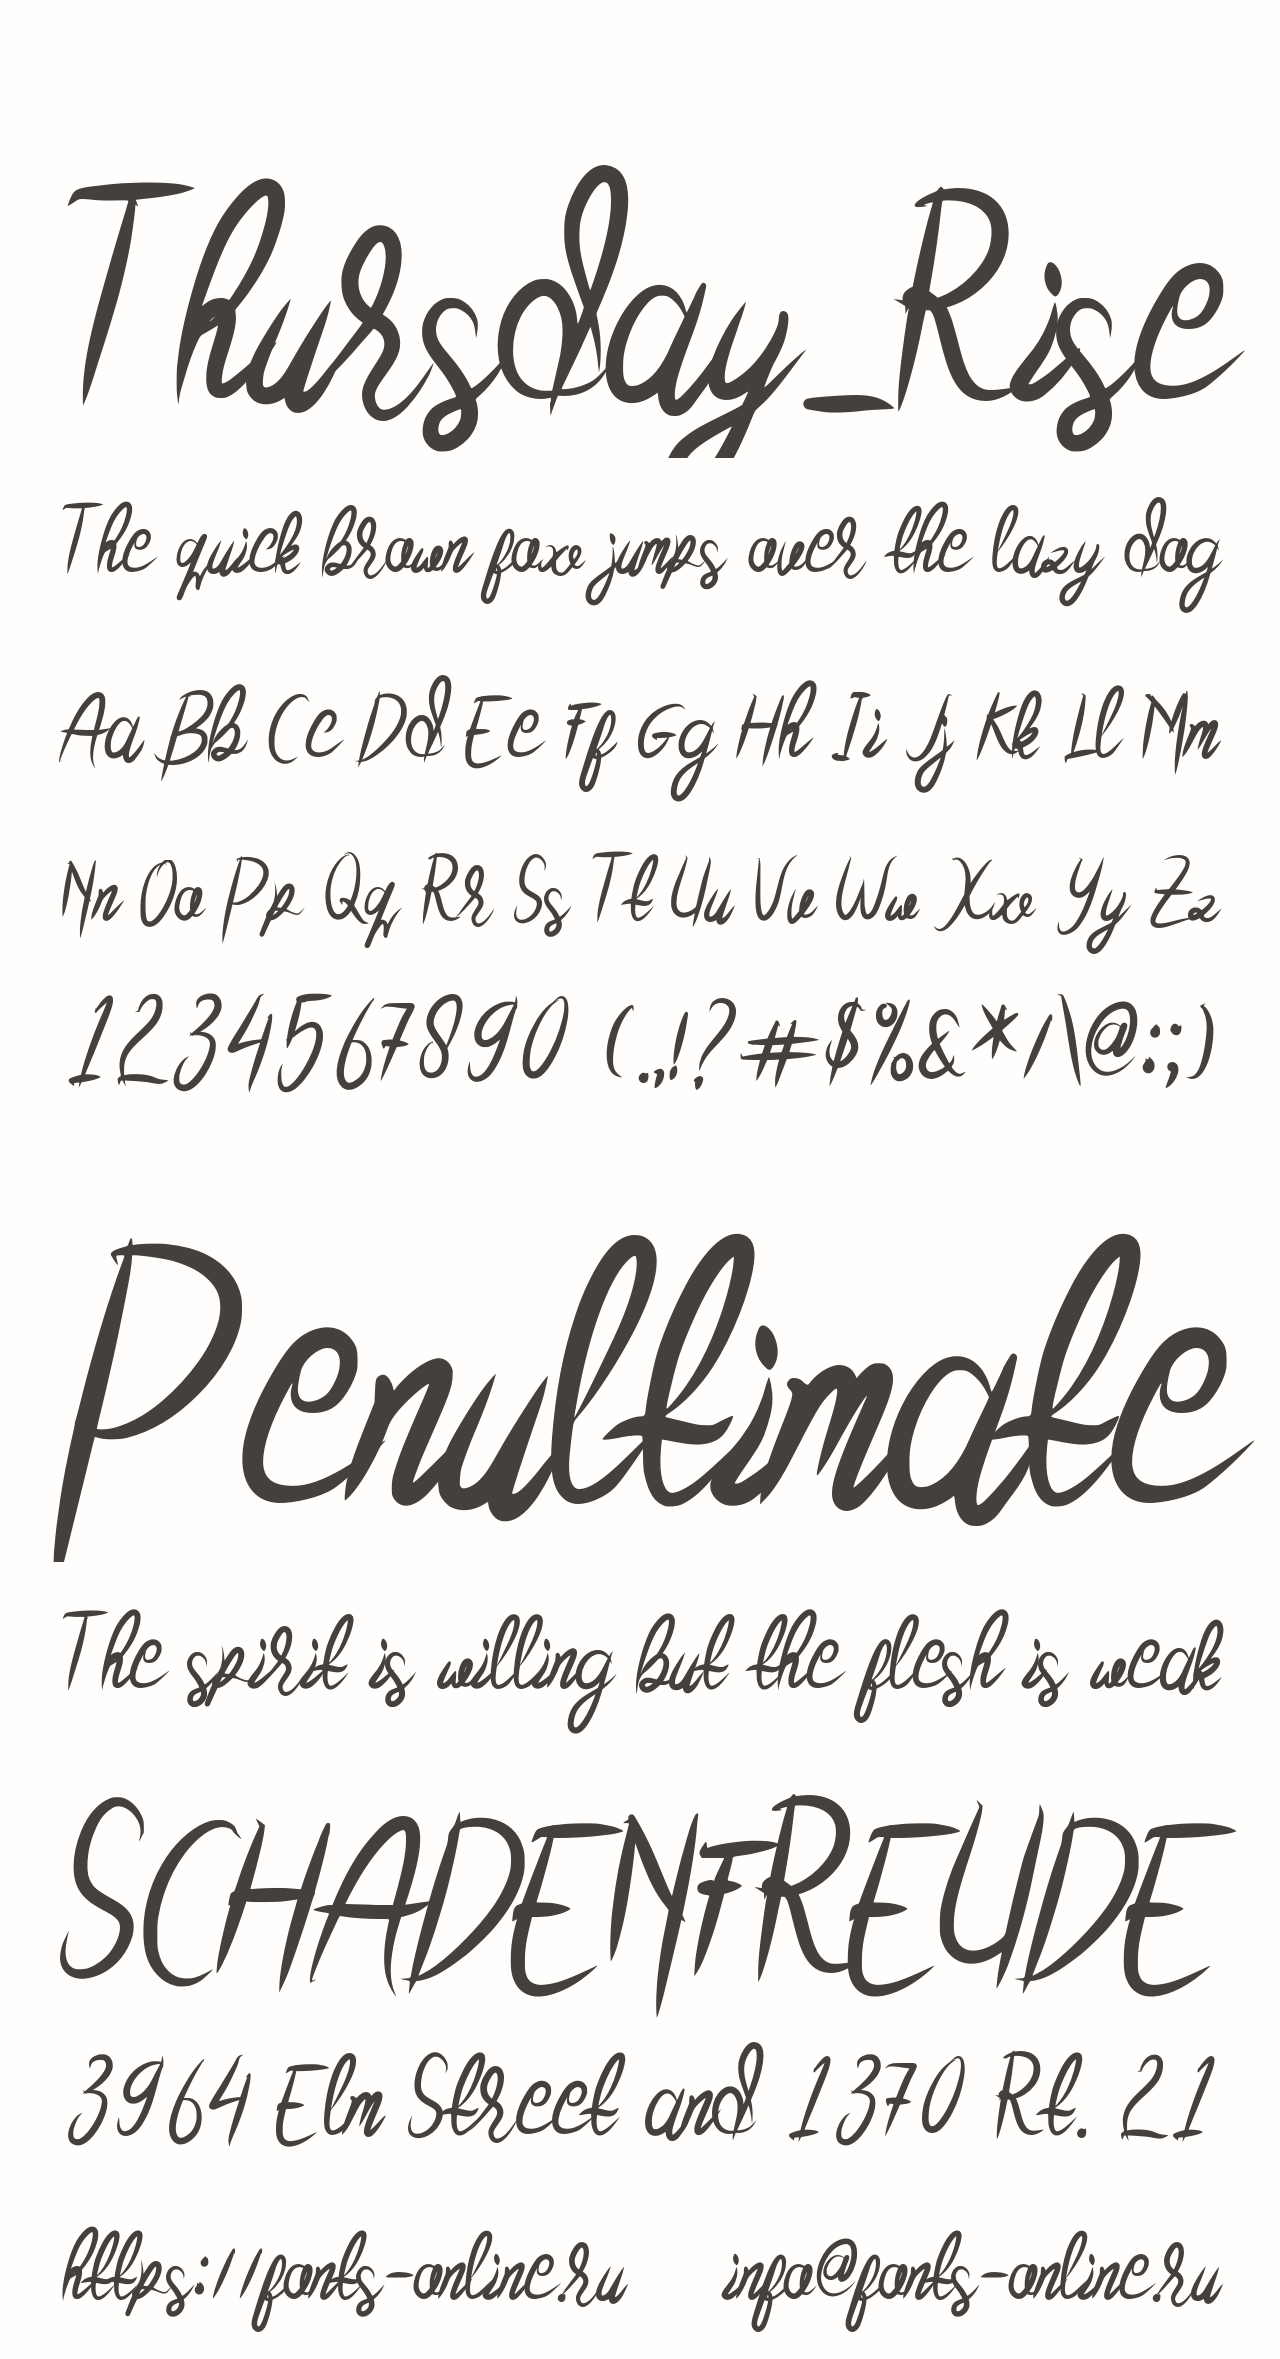 Thursday_Rise
The quick brown fox jumps over the lazy dog
Aa Bb Cc Dd Ee Ff Gg Hh Ii Jj Kk Ll Mm
Nn Oo Pp Qq Rr Ss Tt Uu Vv Ww Xx Yy Zz
1234567890 (.,!?#$%&*/\@:;)
Penultimate
The spirit is willing but the flesh is weak
SCHADENFREUDE
3964 Elm Street and 1370 Rt. 21
https://fonts-online.ru info@fonts-online.ru